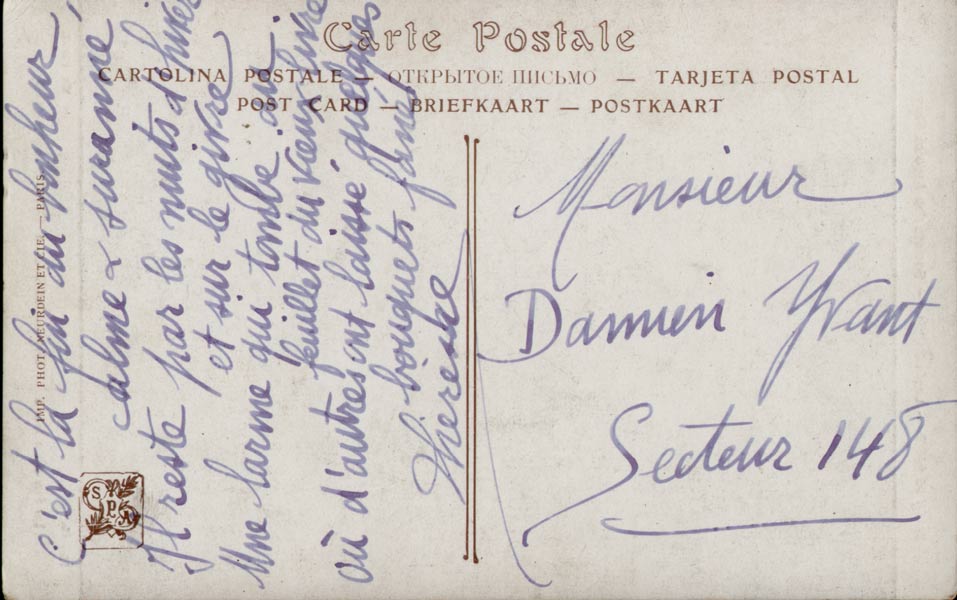 Carte Postale
CARTOLINA POSTALE — ОТКРЫТОЕ ПИСЬМО — TARJETA POSTAL
POST CARD — BRIEFKAART — POSTKAART
IMP. PHOT. NEURDEIN ET CIE. — PARIS
SPA
C'est la fin du bonheur
calme & suranné
Il reste par les nuits d'hiver
et sur le givre
Une larme qui tombe au
feuillet du vieux livre
où d'autres ont laissé quelques
bouquets fanés
Monsieur
Damien Yvant
Secteur 148